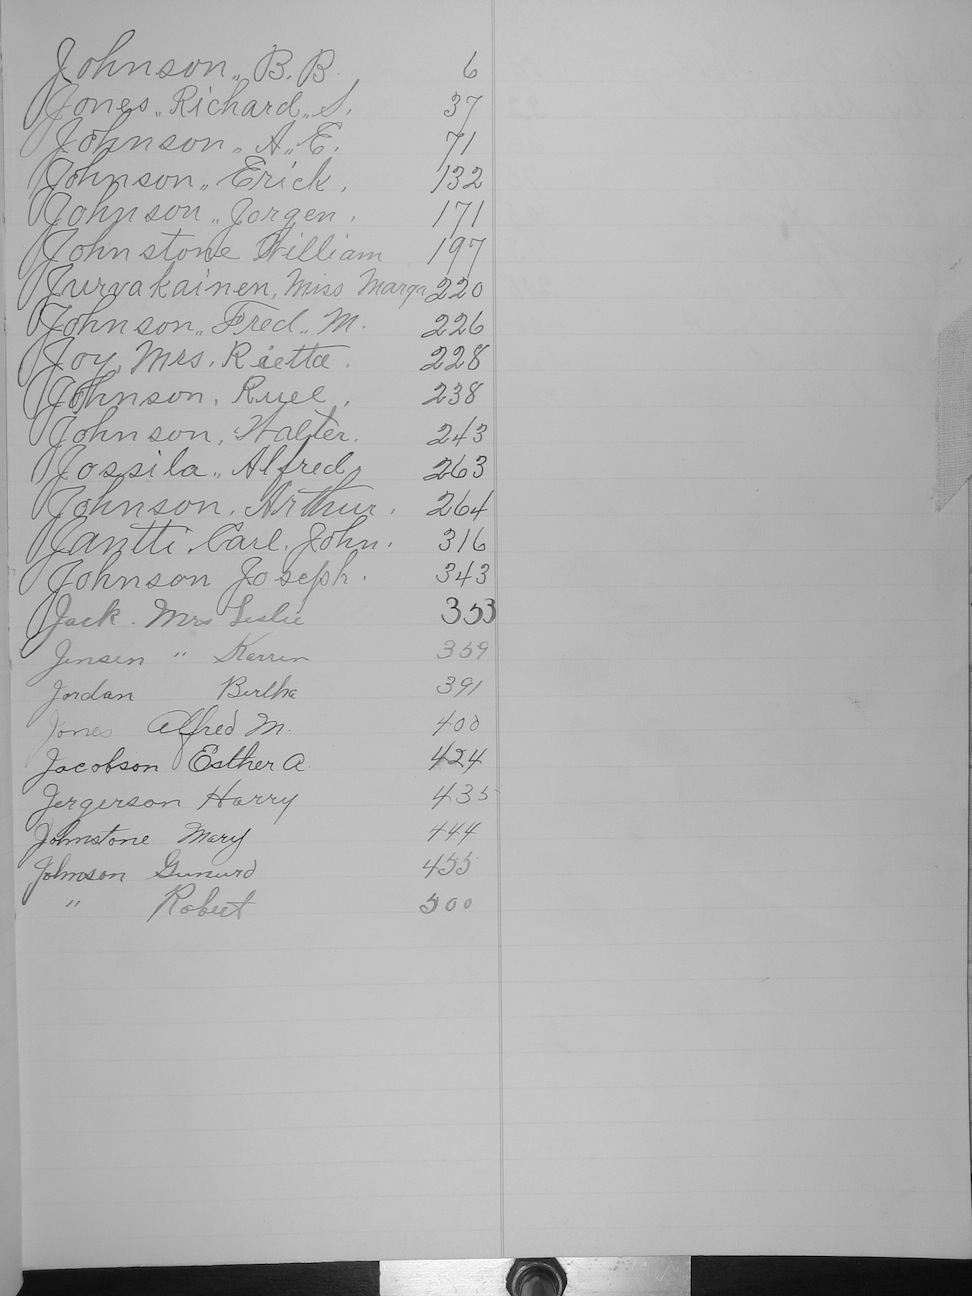 Johnson,, B. B. 6
Jones,, Richard,, S. 37
Johnson,, A,, E. 71
Johnson,, Erick. 132
Johnson,, Jorgen. 171
Johnstone William 197
Jurvakainen, Miss Marga 220
Johnson,, Fred,, M. 226
Joy, Mrs. Rietta. 228
Johnson, Ruel. 238
Johnson, Walter. 243
Jossila,, Alfred, 263
Johnson, Arthur. 264
Jantti, Carl, John. 316
Johnson Joseph. 343
Jack. Mrs Leslie 353
Jensen " Karren 359
Jordan Bertha 391
Jones Alfred M. 400
Jacobson Esther A. 424
Jergerson Harry 435
Johnstone Mary 444
Johnson 455
" Robert 500